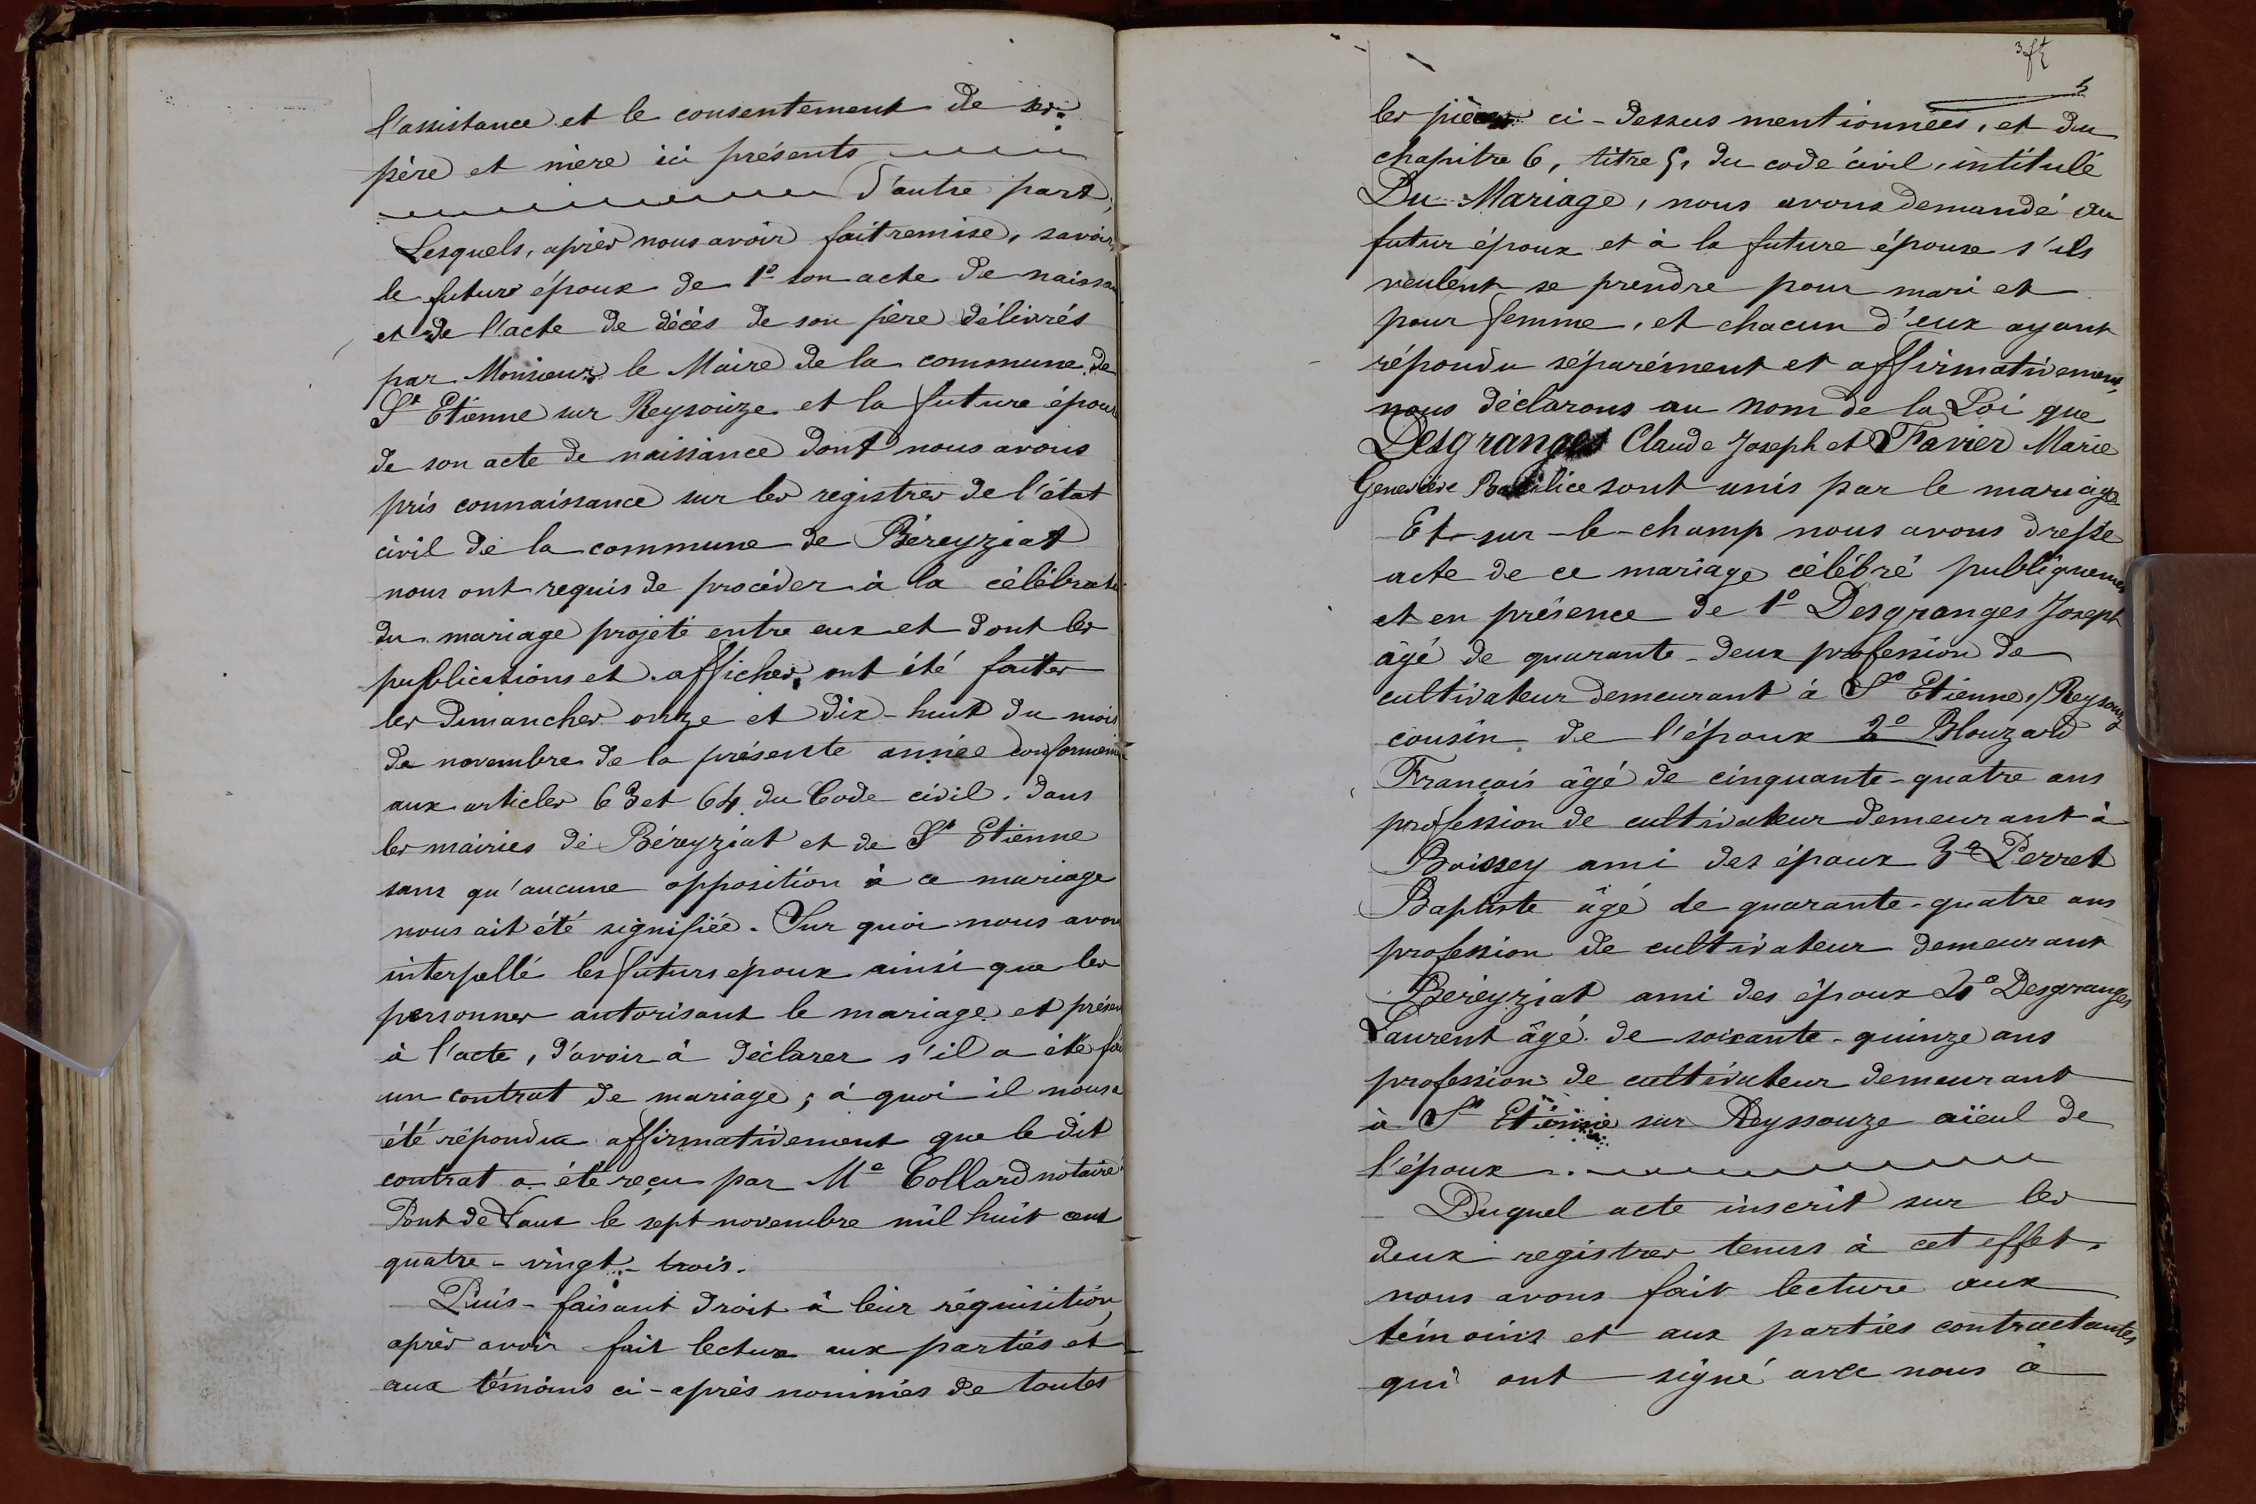 l'assistance et le consentement de ses
père et mère ici présents
d'autre part,
Lesquels, après nous avoir fait remise, savoir,
le futur époux de 1º son acte de naissan
et de l'acte de décès de son père délivrés
par Monsieur le Maire de la commune de
St Etienne sur Reysouze et la future épouse
de son acte de naissance dont nous avons
pris connaissance sur les registres de l'état
civil de la commune de Béreyziat
nous ont requis de procéder à la célébrati
du mariage projeté entre eux et dont les
publications et affiches ont été faites
les dimanches onze et dix-huit du mois
de novembre de la présente année conformémen
aux articles 63 et 64 du Code civil. dans
les mairies de Béreyziat et de St Etienne
sans qu'aucune opposition à ce mariage
nous ait été signifiée. Sur quoi nous avons
interpellé les futurs époux ainsi que les
personnes autorisant le mariage et présen
à l'acte, d'avoir à déclarer s'il a été fai
un contrat de mariage; à quoi il nous a
été répondu affirmativement que le dit
contrat a été reçu par Me Collard notaire
Pont de Vaux le sept novembre mil huit cent
quatre-vingt-trois.
Puis faisant droit à leur réquisition,
après avoir fait lecture aux parties et
aux témoins ci-après nommés de toutes
les pièces ci-dessus mentionnées, et du
chapitre 6, titre 5, du code civil, intitulé
Du Mariage, nous avons demandé au
futur époux et à la future épouse s'ils
veulent se prendre pour mari et
pour femme, et chacun d'eux ayant
répondu séparément et affirmativement,
nous déclarons au nom de la Loi que
Desgranges Claude Joseph et Favier Marie
Geneviève Basilice sont unis par le mariage
Et sur-le-champ nous avons dressé
acte de ce mariage célébré publiquemen
et en présence de 1º Desgranges Joseph
âgé de quarante-deux profession de
cultivateur demeurant à St Etienne s/Reysouze
cousin de l'époux 2º Blouzard
François âgé de cinquante-quatre ans
profession de cultivateur demeurant à
Boissey ami des époux 3º Perret
Baptiste âgé de quarante-quatre ans
profession de cultivateur demeurant
Béreyziat ami des époux 4º Desgranges
Laurent âgé de soixante-quinze ans
profession de cultivateur demeurant
à St Etienne sur Reyssouze aïeul de
l'époux.
Duquel acte inscrit sur les
deux registres tenus à cet effet,
nous avons fait lecture aux
témoins et aux parties contractantes
qui ont signé avec nous à